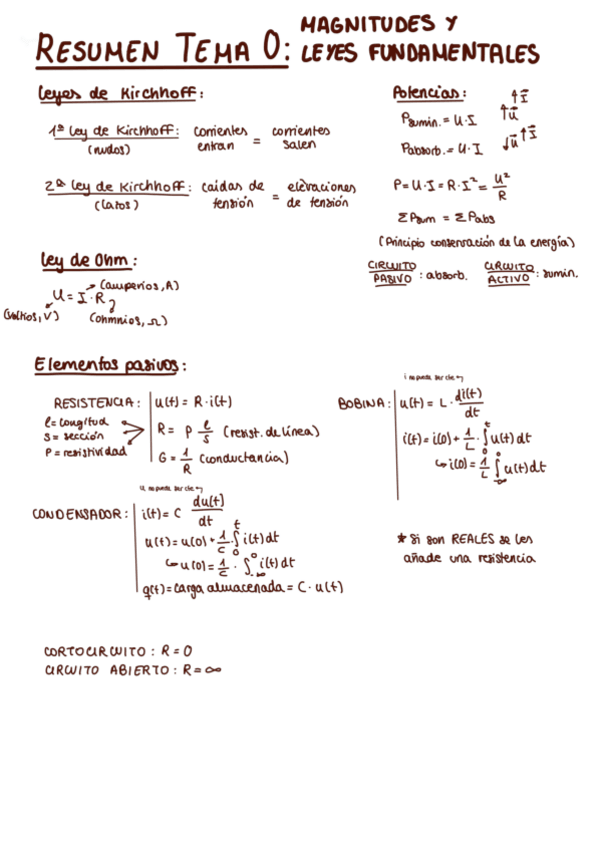 RESUMEN TEMA 0: MAGNITUDES Y
LEYES FUNDAMENTALES
Leyes de Kirchhoff:
1ª Ley de Kirchhoff: corrientes entran = corrientes salen
(nudos)
2ª Ley de Kirchhoff: caídas de tensión = elevaciones de tensión
(Lazos)
Potencias:
↑I
Psumin. = U·I ↑u
Pabsorb. = U·I ↓u ↑I
P = U·I = R·I² = U²/R
ΣPsum = ΣPabs
(Principio conservación de la energía)
CIRCUITO PASIVO : absorb. CIRCUITO ACTIVO : sumin.
Ley de Ohm:
(amperios, A)
U = I·R
(voltios, V) (ohmnios, Ω)
Elementos pasivos:
RESISTENCIA: u(t) = R·i(t)
l = longitud
S = sección
ρ = resistividad
R = ρ l/S (resist. de línea)
G = 1/R (conductancia)
i no puede ser cte
BOBINA: u(t) = L· di(t)/dt
i(t) = i(0) + 1/L · ∫₀ᵗ u(t) dt
↳ i(0) = 1/L ∫ u(t) dt
u no puede ser cte
CONDENSADOR: i(t) = C du(t)/dt
u(t) = u(0) + 1/C · ∫₀ᵗ i(t) dt
↳ u(0) = 1/C · ∫₋∞⁰ i(t) dt
q(t) = carga almacenada = C·u(t)
* Si son REALES se les
añade una resistencia
CORTOCIRCUITO : R = 0
CIRCUITO ABIERTO : R = ∞